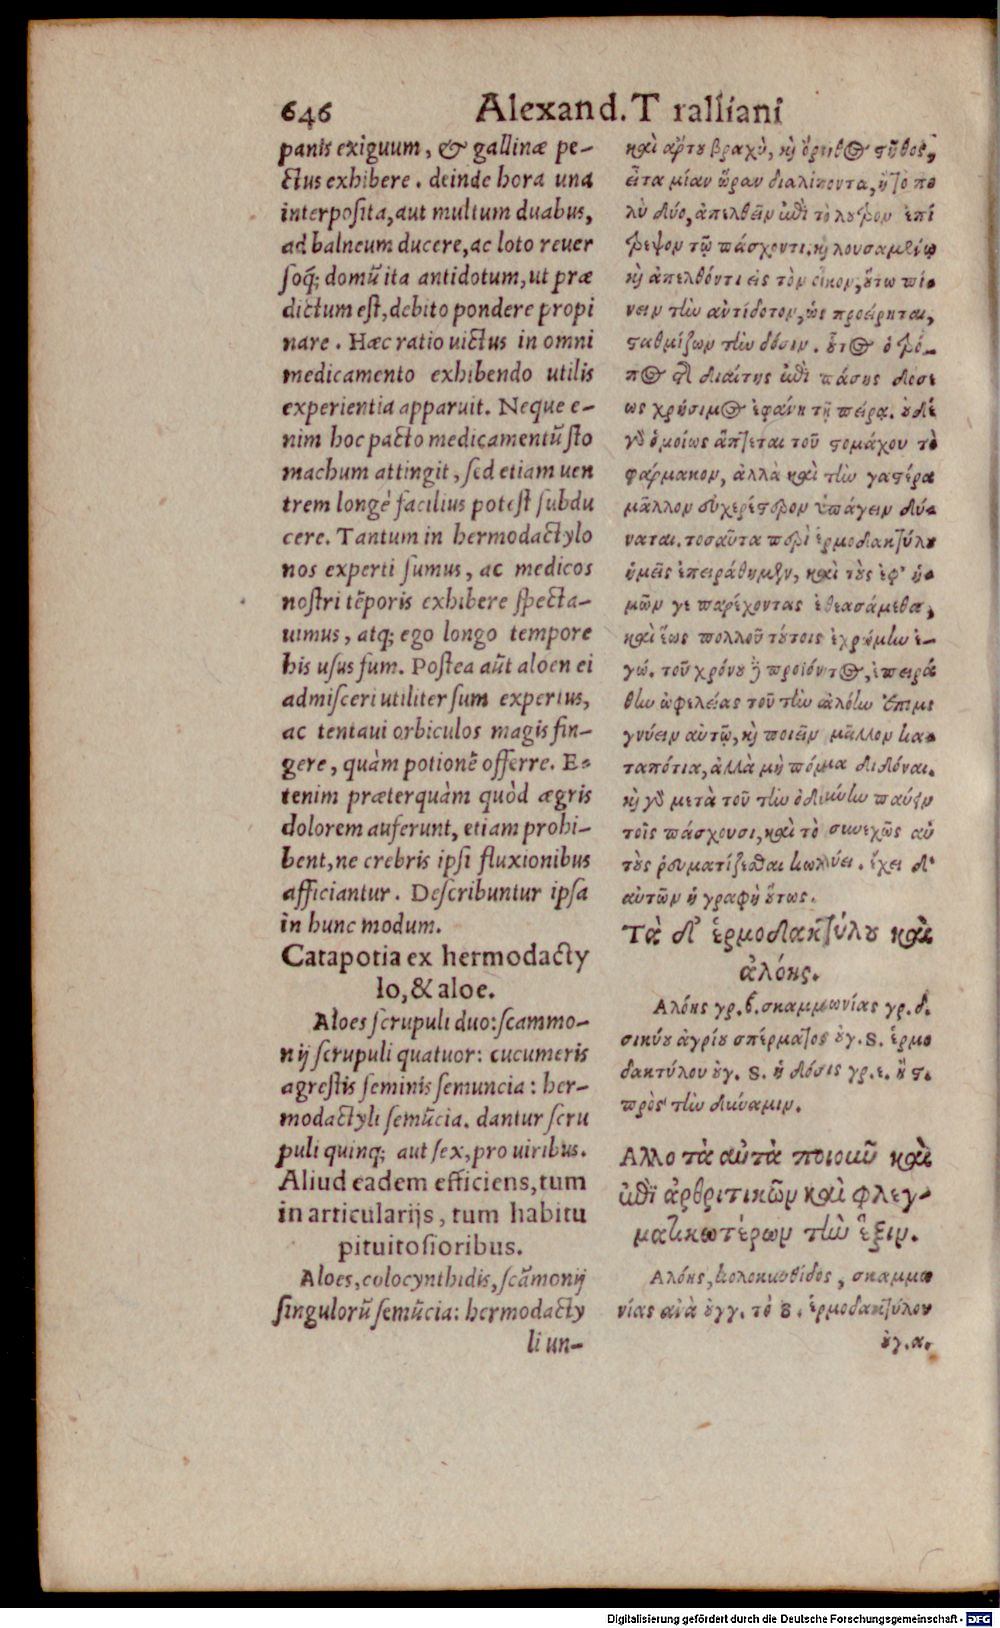 646 Alexand. Tralliani
panis exiguum, & gallinæ pe-
ctus exhibere. deinde hora una
interposita, aut multum duabus,
ad balneum ducere, ac loto reuer
soq́; domũ ita antidotum, ut præ
dictum est, debito pondere propi
nare. Hæc ratio uictus in omni
medicamento exhibendo utilis
experientia apparuit. Neque e-
nim hoc pacto medicamentũ sto
machum attingit, sed etiam uen
trem longè facilius potest subdu
cere. Tantum in hermodactylo
nos experti sumus, ac medicos
nostri tẽporis exhibere specta-
uimus, atq; ego longo tempore
his usus sum. Postea aũt aloen ei
admisceri utiliter sum expertus,
ac tentaui orbiculos magis fin-
gere, quàm potionẽ offerre. E-
tenim præterquàm quòd ægris
dolorem auferunt, etiam prohi-
bent, ne crebris ipsi fluxionibus
afficiantur. Describuntur ipsa
in hunc modum.
Catapotia ex hermodacty
lo, & aloe.
Aloes scrupuli duo: scammo-
nij scrupuli quatuor: cucumeris
agrestis seminis semuncia: her-
modactyli semũcia. dantur scru
puli quinq; aut sex, pro uiribus.
Aliud eadem efficiens, tum
in articularijs, tum habitu
pituitosioribus.
Aloes, colocynthidis, scãmonij
singulorũ semũcia: hermodacty
li un-
καὶ ἄρτου βραχὺ, καὶ ὄρνιθος στῆθος,
εἶτα μίαν ὥραν διαλίποντα, ἢ τὸ πο
λὺ δύο, ἀπελθεῖν ἐπὶ τὸ λουτρὸν ἐπί
τρεψον τῷ πάσχοντι. καὶ λουσαμένῳ
καὶ ἀπελθόντι εἰς τὸν οἶκον, οὕτω πί-
νειν τὴν ἀντίδοτον, ὡς προείρηται,
σταθμίζων τὴν δόσιν. οὗτος ὁ τρό-
πος τῆς διαίτης ἐπὶ πάσης δόσε
ως χρήσιμος ἐφάνη τῇ πείρᾳ. οὐδὲ
γὰρ ὁμοίως ἅπτεται τοῦ στομάχου τὸ
φάρμακον, ἀλλὰ καὶ τὴν γαστέρα
μᾶλλον εὐχερέστερον ὑπάγειν δύ-
ναται. τοσαῦτα περὶ ἑρμοδακτύλου
ἡμεῖς ἐπειράθημεν, καὶ τοὺς ἐφ' ἡ-
μῶν γε παρέχοντας ἐθεασάμεθα,
καὶ ἕως πολλοῦ τούτοις ἐχρώμην ἐ-
γώ. τοῦ χρόνου δὲ προϊόντος, ἐπειρά
θην ὠφελείας τοῦ τὴν ἀλόην ἐπιμι
γνύειν αὐτῷ, καὶ ποιεῖν μᾶλλον κα-
ταπότια, ἀλλὰ μὴ πόμα διδόναι.
καὶ γὰρ μετὰ τοῦ τὴν ὀδύνην παύειν
τοῖς πάσχουσι, καὶ τὸ συνεχῶς αὐ
τοὺς ῥευματίζεσθαι κωλύει. ἔχει δ'
αὐτῶν ἡ γραφὴ οὕτως.
Τὰ δι' ἑρμοδακτύλου καὶ
ἀλόης.
Αλόης γρ. β. σκαμμωνίας γρ. δ.
σικύου ἀγρίου σπέρματος οὐγ. S. ἑρμο
δακτύλου οὐγ. S. ἡ δόσις γρ. ε. ἢ ϛ.
πρὸς τὴν δύναμιν.
Αλλο τὰ αὐτὰ ποιοῦν καὶ
ἐπὶ ἀρθριτικῶν καὶ φλεγ-
ματικωτέρων τὴν ἕξιν.
Αλόης, κολοκυνθίδος, σκαμμω
νίας ἀνὰ οὐγγ. τὸ S. ἑρμοδακτύλου
οὐγ. α.
Digitalisierung gefördert durch die Deutsche Forschungsgemeinschaft - DFG